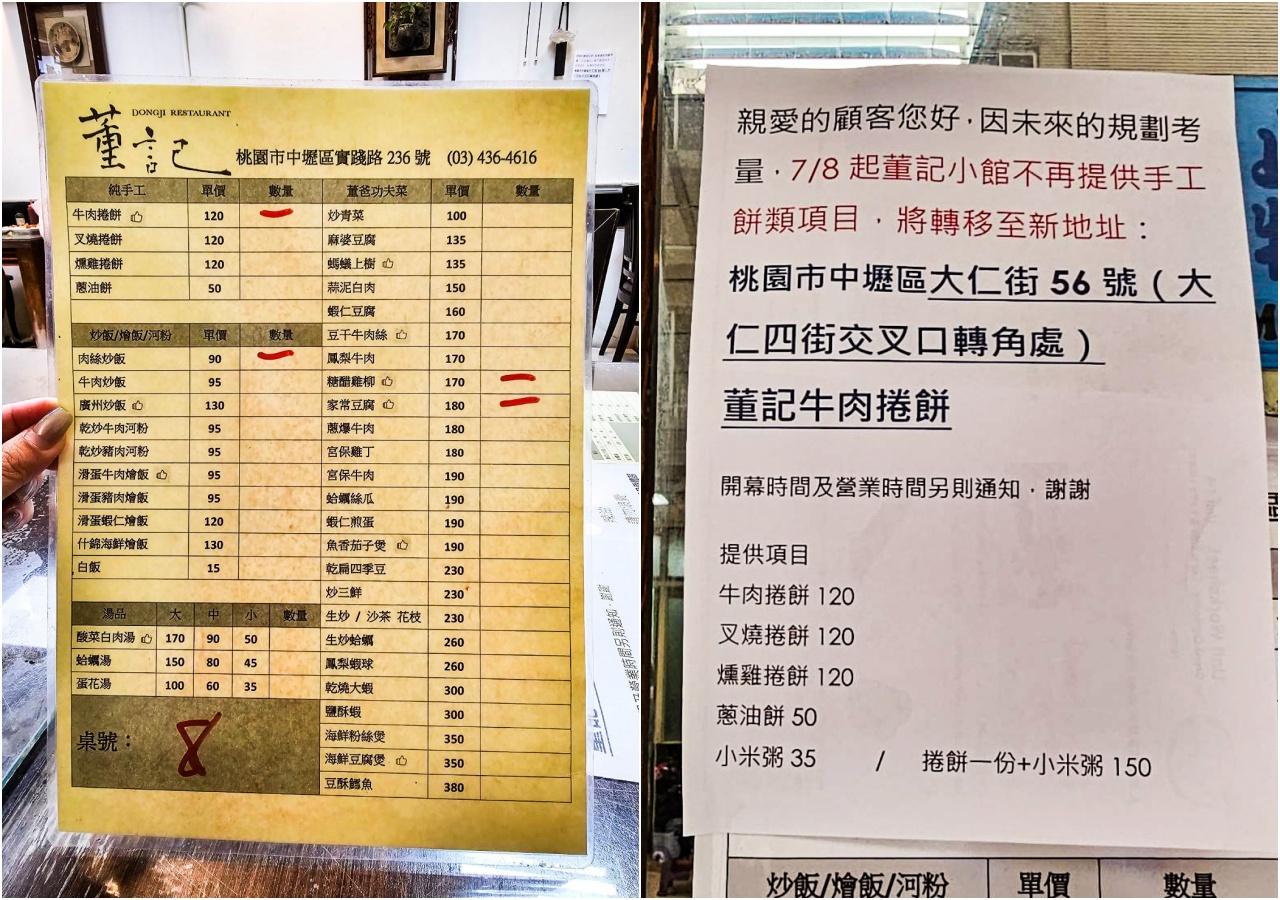 董記 DONGJI RESTAURANT
桃園市中壢區實踐路 236 號 (03) 436-4616
純手工 單價 數量
牛肉捲餅 120
叉燒捲餅 120
燻雞捲餅 120
蔥油餅 50
炒飯/燴飯/河粉 單價 數量
肉絲炒飯 90
牛肉炒飯 95
廣州炒飯 130
乾炒牛肉河粉 95
乾炒豬肉河粉 95
滑蛋牛肉燴飯 95
滑蛋豬肉燴飯 95
滑蛋蝦仁燴飯 120
什錦海鮮燴飯 130
白飯 15
湯品 大 中 小 數量
酸菜白肉湯 170 90 50
蛤蠣湯 150 80 45
蛋花湯 100 60 35
桌號： 8
董爸功夫菜 單價 數量
炒青菜 100
麻婆豆腐 135
螞蟻上樹 135
蒜泥白肉 150
蝦仁豆腐 160
豆干牛肉絲 170
鳳梨牛肉 170
糖醋雞柳 170
家常豆腐 180
蔥爆牛肉 180
宮保雞丁 180
宮保牛肉 190
蛤蠣絲瓜 190
蝦仁煎蛋 190
魚香茄子煲 190
乾扁四季豆 230
炒三鮮 230
生炒 / 沙茶 花枝 230
生炒蛤蠣 260
鳳梨蝦球 260
乾燒大蝦 300
鹽酥蝦 300
海鮮粉絲煲 350
海鮮豆腐煲 350
豆酥鱈魚 380
親愛的顧客您好，因未來的規劃考
量，7/8 起董記小館不再提供手工
餅類項目，將轉移至新地址：
桃園市中壢區大仁街 56 號（大
仁四街交叉口轉角處）
董記牛肉捲餅
開幕時間及營業時間另則通知，謝謝
提供項目
牛肉捲餅 120
叉燒捲餅 120
燻雞捲餅 120
蔥油餅 50
小米粥 35 / 捲餅一份+小米粥 150
炒飯/燴飯/河粉 單價 數量